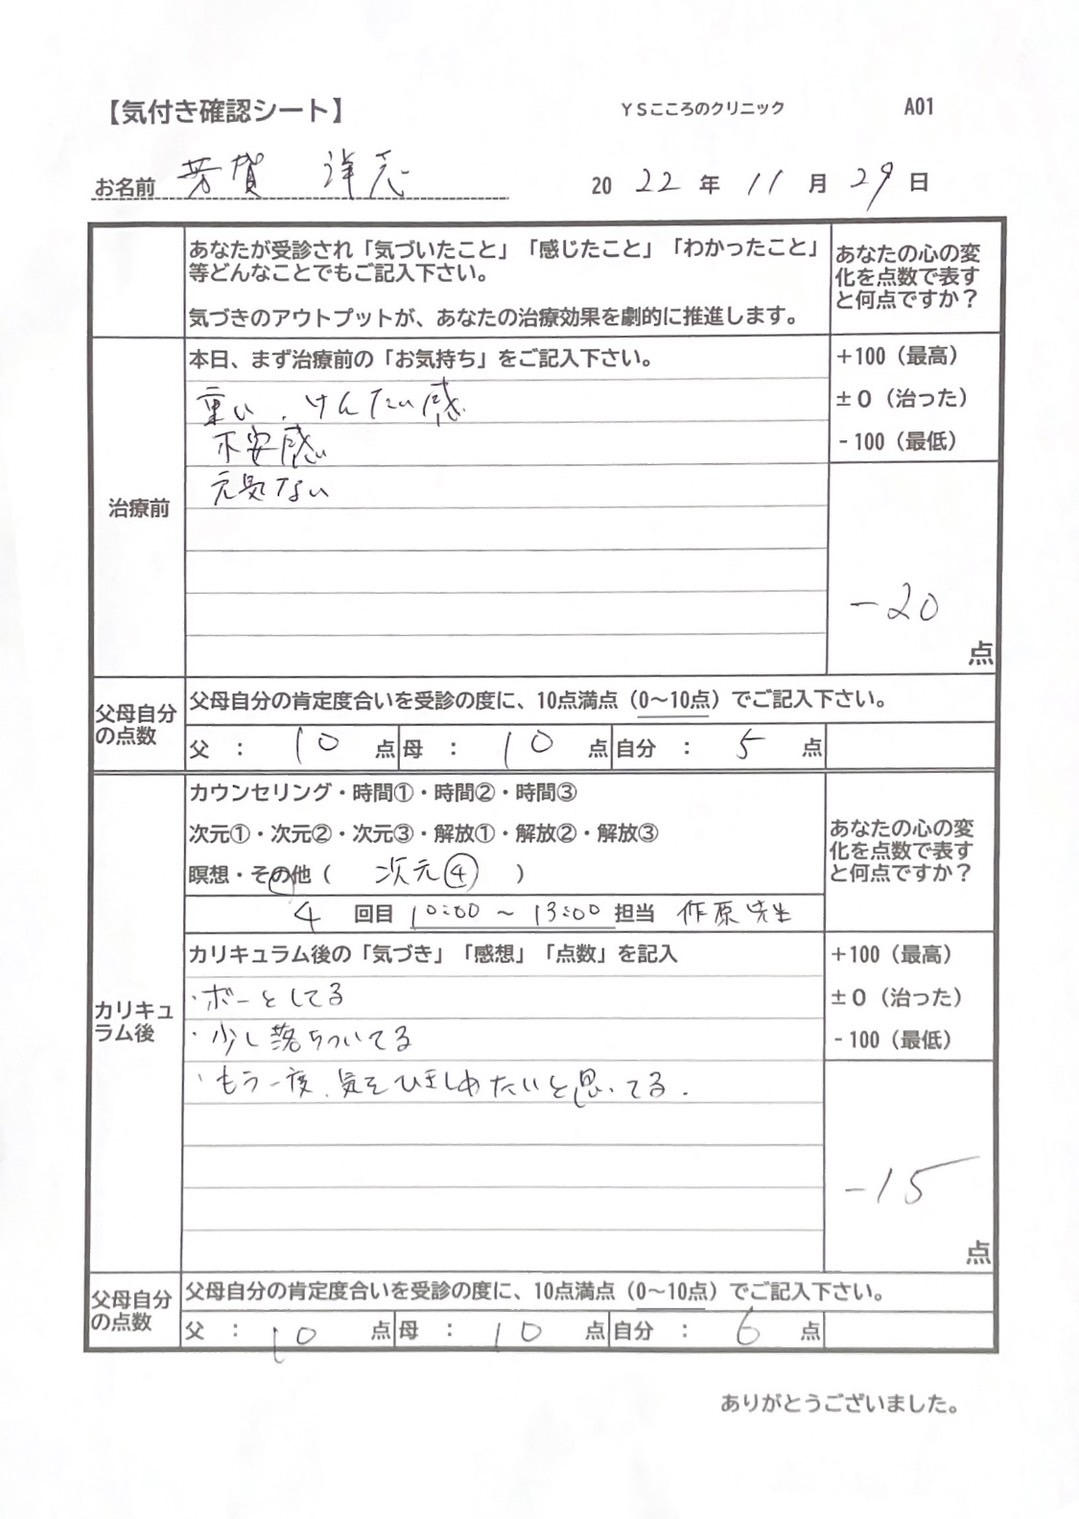 【気付き確認シート】 YSこころのクリニック A01
お名前 芳賀 洋志 2022年11月29日
あなたが受診され「気づいたこと」「感じたこと」「わかったこと」
等どんなことでもご記入下さい。
気づきのアウトプットが、あなたの治療効果を劇的に推進します。
あなたの心の変
化を点数で表す
と何点ですか？
治療前
本日、まず治療前の「お気持ち」をご記入下さい。
重い、けんたい感
不安感
元気ない
+100（最高）
±0（治った）
-100（最低）
-20
点
父母自分
の点数
父母自分の肯定度合いを受診の度に、10点満点（0～10点）でご記入下さい。
父 ： 10 点 母 ： 10 点 自分 ： 5 点
カリキュ
ラム後
カウンセリング・時間①・時間②・時間③
次元①・次元②・次元③・解放①・解放②・解放③
瞑想・その他（ 次元④ ）
4 回目 10:00 ～ 13:00 担当 作原先生
あなたの心の変
化を点数で表す
と何点ですか？
カリキュラム後の「気づき」「感想」「点数」を記入
・ボーとしてる
・少し落ちついてる
・もう一度、気をひきしめたいと思ってる.
+100（最高）
±0（治った）
-100（最低）
-15
点
父母自分
の点数
父母自分の肯定度合いを受診の度に、10点満点（0～10点）でご記入下さい。
父 ： 10 点 母 ： 10 点 自分 ： 6 点
ありがとうございました。